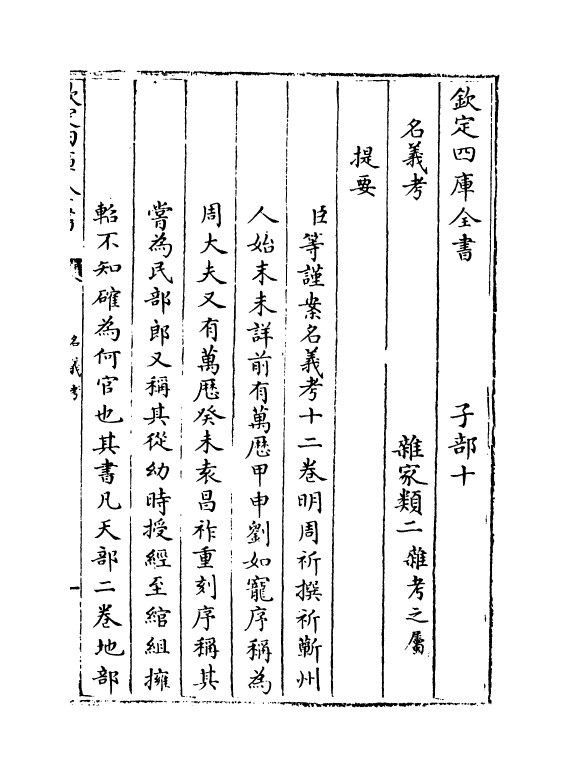 欽定四庫全書　　　子部十
名義考　　　雜家類二雜考之屬
提要
臣等謹案名義考十二卷明周祈撰祈蘄州
人始末未詳前有萬歷甲申劉如寵序稱為
周大夫又有萬歷癸未袁昌祚重刻序稱其
嘗為民部郎又稱其從幼時授經至綰組擁
軺不知確為何官也其書凡天部二卷地部
名義考
一